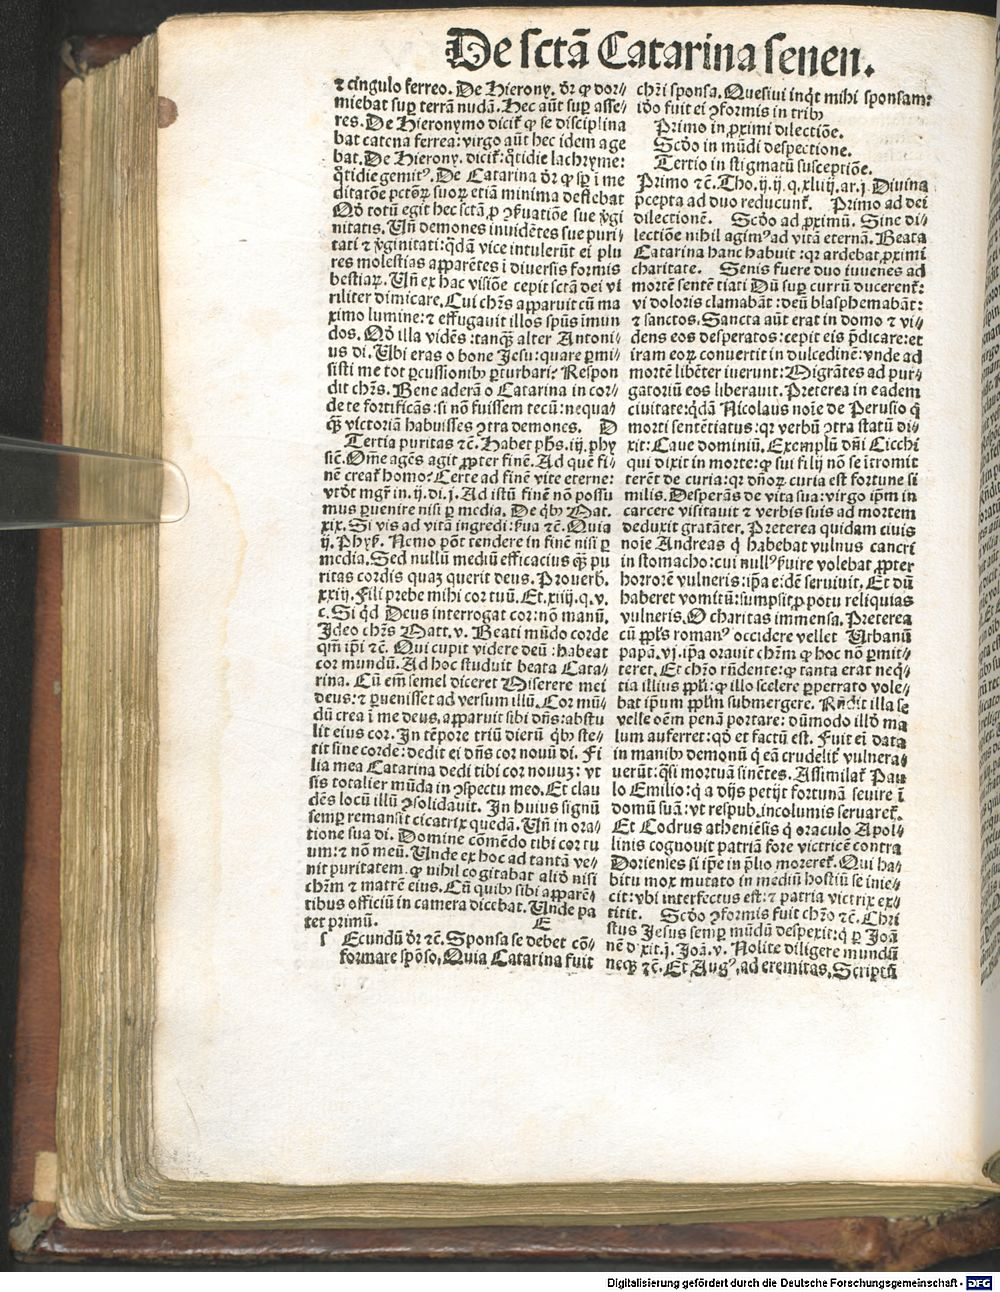 De sctā Catarina senen.
⁊ cingulo ferreo. De Hierony. dr̄ ꝙ dor⸗
miebat suꝑ terrā nudā. Hec aūt suꝑ asse⸗
res. De Hieronymo dicit̄ ꝙ se disciplina
bat catena ferrea: virgo aūt hec idem age
bat. De Hierony. dicit̄: q̄tidie lachryme:
q̄tidie gemitꝰ. De Catarina dr̄ ꝙ sꝑ ī me
ditatōe pctōꝝ suoꝝ etiā minima deflebat
Qd̄ totū egit hec sctā ꝓ ꝯẜuatiōe sue v̄gi
nitatis. Vn̄ demones inuidētes sue puri⸗
tati ⁊ v̄ginitati: q̄dā vice intulerūt ei plu
res molestias apparētes ī diuersis formis
bestiaꝝ. Vn̄ ex hac visiōe cepit sctā dei vi
riliter dimicare. Cui chr̄s apparuit cū ma
ximo lumine: ⁊ effugauit illos spūs īmun
dos. Qd̄ illa vidēs: tanq̄ꝫ alter Antoni⸗
us di. Vbi eras o bone Jesu: quare ꝑmi⸗
sisti me tot ꝑcussionibꝰ ꝑturbari? Respon
dit chr̄s. Bene aderā o Catarina in cor⸗
de te fortificās: si nō fuissem tecū: nequa⸗
q̄ꝫ victoriā habuisses ꝯtra demones. D
Tertia puritas ⁊c̄. Habet ph̄s. ij. phy
sic̄. Om̄e agēs agit ꝓpter finē. Ad quē fi⸗
nē creat̄ homo? Certe ad finē vite eterne:
vt dt̄ mgr̄ in. ij. di. j. Ad istū finē nō possu
mus ꝑuenire nisi ꝑ media. De q̄bꝰ Mat.
xix. Si vis ad vitā ingredi: ẜua ⁊c̄. Quia
ij. Phyẜ. Nemo pōt tendere in finē nisi ꝑ
media. Sed nullū mediū efficacius q̄ꝫ pu
ritas cordis quaꝫ querit deus. Prouerb.
xxiij. Fili prebe mihi cor tuū. Et. xiiij. q. v.
c. Si qd̄ Deus interrogat cor: nō manū.
Ideo chr̄s Matt. v. Beati mūdo corde
qm̄ ip̄i ⁊c̄. Qui cupit videre deū: habeat
cor mundū. Ad hoc studuit beata Cata⸗
rina. Cū em̄ semel diceret Miserere mei
deus: ⁊ ꝑuenisset ad versum illū. Cor mū⸗
dū crea ī me deus, apparuit sibi dn̄s: abstu
lit eius cor. In tēpore triū dierū q̄bꝰ ste⸗
tit sine corde: dedit ei dn̄s cor nouū di. Fi
lia mea Catarina dedi tibi cor nouuꝫ: vt
sis totaliter mūda in ꝯspectu meo. Et clau
dēs locū illū ꝯsolidauit. In huius signū
semꝑ remansit cicatrix quedā. Vn̄ in ora⸗
tione sua di. Domine cōmēdo tibi cor tu
um: ⁊ nō meū. Vnde ex hoc ad tantā ve⸗
nit puritatem. ꝙ nihil cogitabat aliđ nisi
chr̄m ⁊ matrē eius. Cū quibꝰ sibi apparē⸗
tibus officiū in camera dicebat. Vnde pa
tet primū. E
s Ecundū dr̄ ⁊c̄. Sponsa se debet cō⸗
formare spōso, Quia Catarina fuit
chr̄i sponsa. Quesiui inq̄t mihi sponsam:
iđo fuit ei ꝯformis in tribꝰ
Primo in ꝓximi dilectiōe.
Scđo in mūdi despectione.
Tertio in stigmatū susceptiōe.
Primo ⁊c̄. Tho. ij. ij. q. xliiij. ar. j. Diuina
p̄cepta ad duo reducunt̄. Primo ad dei
dilectionē. Scđo ad ꝓximū. Sine di⸗
lectiōe nihil agimꝰ ad vitā eternā. Beata
Catarina hanc habuit: qꝛ ardebat ꝓximi
charitate. Senis fuere duo iuuenes ad
mortē sentētiati Dū suꝑ currū ducerent̄:
vi doloris clamabāt: deū blasphemabāt:
⁊ sanctos. Sancta aūt erat in domo ⁊ vi⸗
dens eos desperatos: cepit eis p̄dicare: et
iram eoꝝ conuertit in dulcedinē: vnde ad
mortē libēter iuerunt: Migrātes ad pur⸗
gatoriū eos liberauit. Preterea in eadem
ciuitate: q̄dā Nicolaus noīe de Perusio q̄
morti sentētiatus: qꝛ verbū ꝯtra statū di⸗
xit: Caue dominiū. Exemplū dn̄i Cicchi
qui dixit in morte: ꝙ sui filij nō se ītromit
terēt de curia: qꝛ dn̄oꝝ curia est fortune si
milis. Desperās de vita sua: virgo ip̄m in
carcere visitauit ⁊ verbis suis ad mortem
deduxit gratāter. Preterea quidam ciuis
noīe Andreas q̄ habebat vulnus cancri
in stomacho: cui nullꝰ ẜuire volebat ꝓpter
horrorē vulneris: ip̄a eidē seruiuit. Et dū
haberet vomitū: sumpsit ꝓ potu reliquias
vulneris. O charitas immensa. Preterea
cū ppl̄s romanꝰ occidere vellet Urbanū
papā. vj. ip̄a orauit chr̄m ꝙ hoc nō ꝑmit⸗
teret. Et chr̄o rn̄dente: ꝙ tanta erat neq̄⸗
tia illius ppl̄i: ꝙ illo scelere ꝑpetrato vole⸗
bat ip̄um ppl̄m submergere. Rn̄dit illa se
velle oēm penā portare: dūmodo illđ ma
lum auferret: qđ et factū est. Fuit ei data
in manibꝰ demonū q̄ eā crudelit̄ vulnera⸗
uerūt: q̄si mortuā sinētes. Assimilat̄ Pau
lo Emilio: q̄ a dijs petijt fortunā seuire ī
domū suā: vt respub. incolumis seruaret̄.
Et Codrus atheniēsis q̄ oraculo Apol⸗
linis cognouit patriā fore victricē contra
Dorienses si ip̄e in p̄lio moreret̄. Qui ha⸗
bitu mox mutato in mediū hostiū se inie⸗
cit: vbi interfectus est: ⁊ patria victrix ex⸗
titit. Scđo ꝯformis fuit chr̄o ⁊c̄. Chri
stus Jesus semꝑ mūdū despexit: q̄ ꝑ Joā
nē dixit. j. Joā. v. Nolite diligere mundū
neqꝫ ⁊c̄. Et Augꝰ, ad eremitas, Scriptū
Digitalisierung gefördert durch die Deutsche Forschungsgemeinschaft - DFG